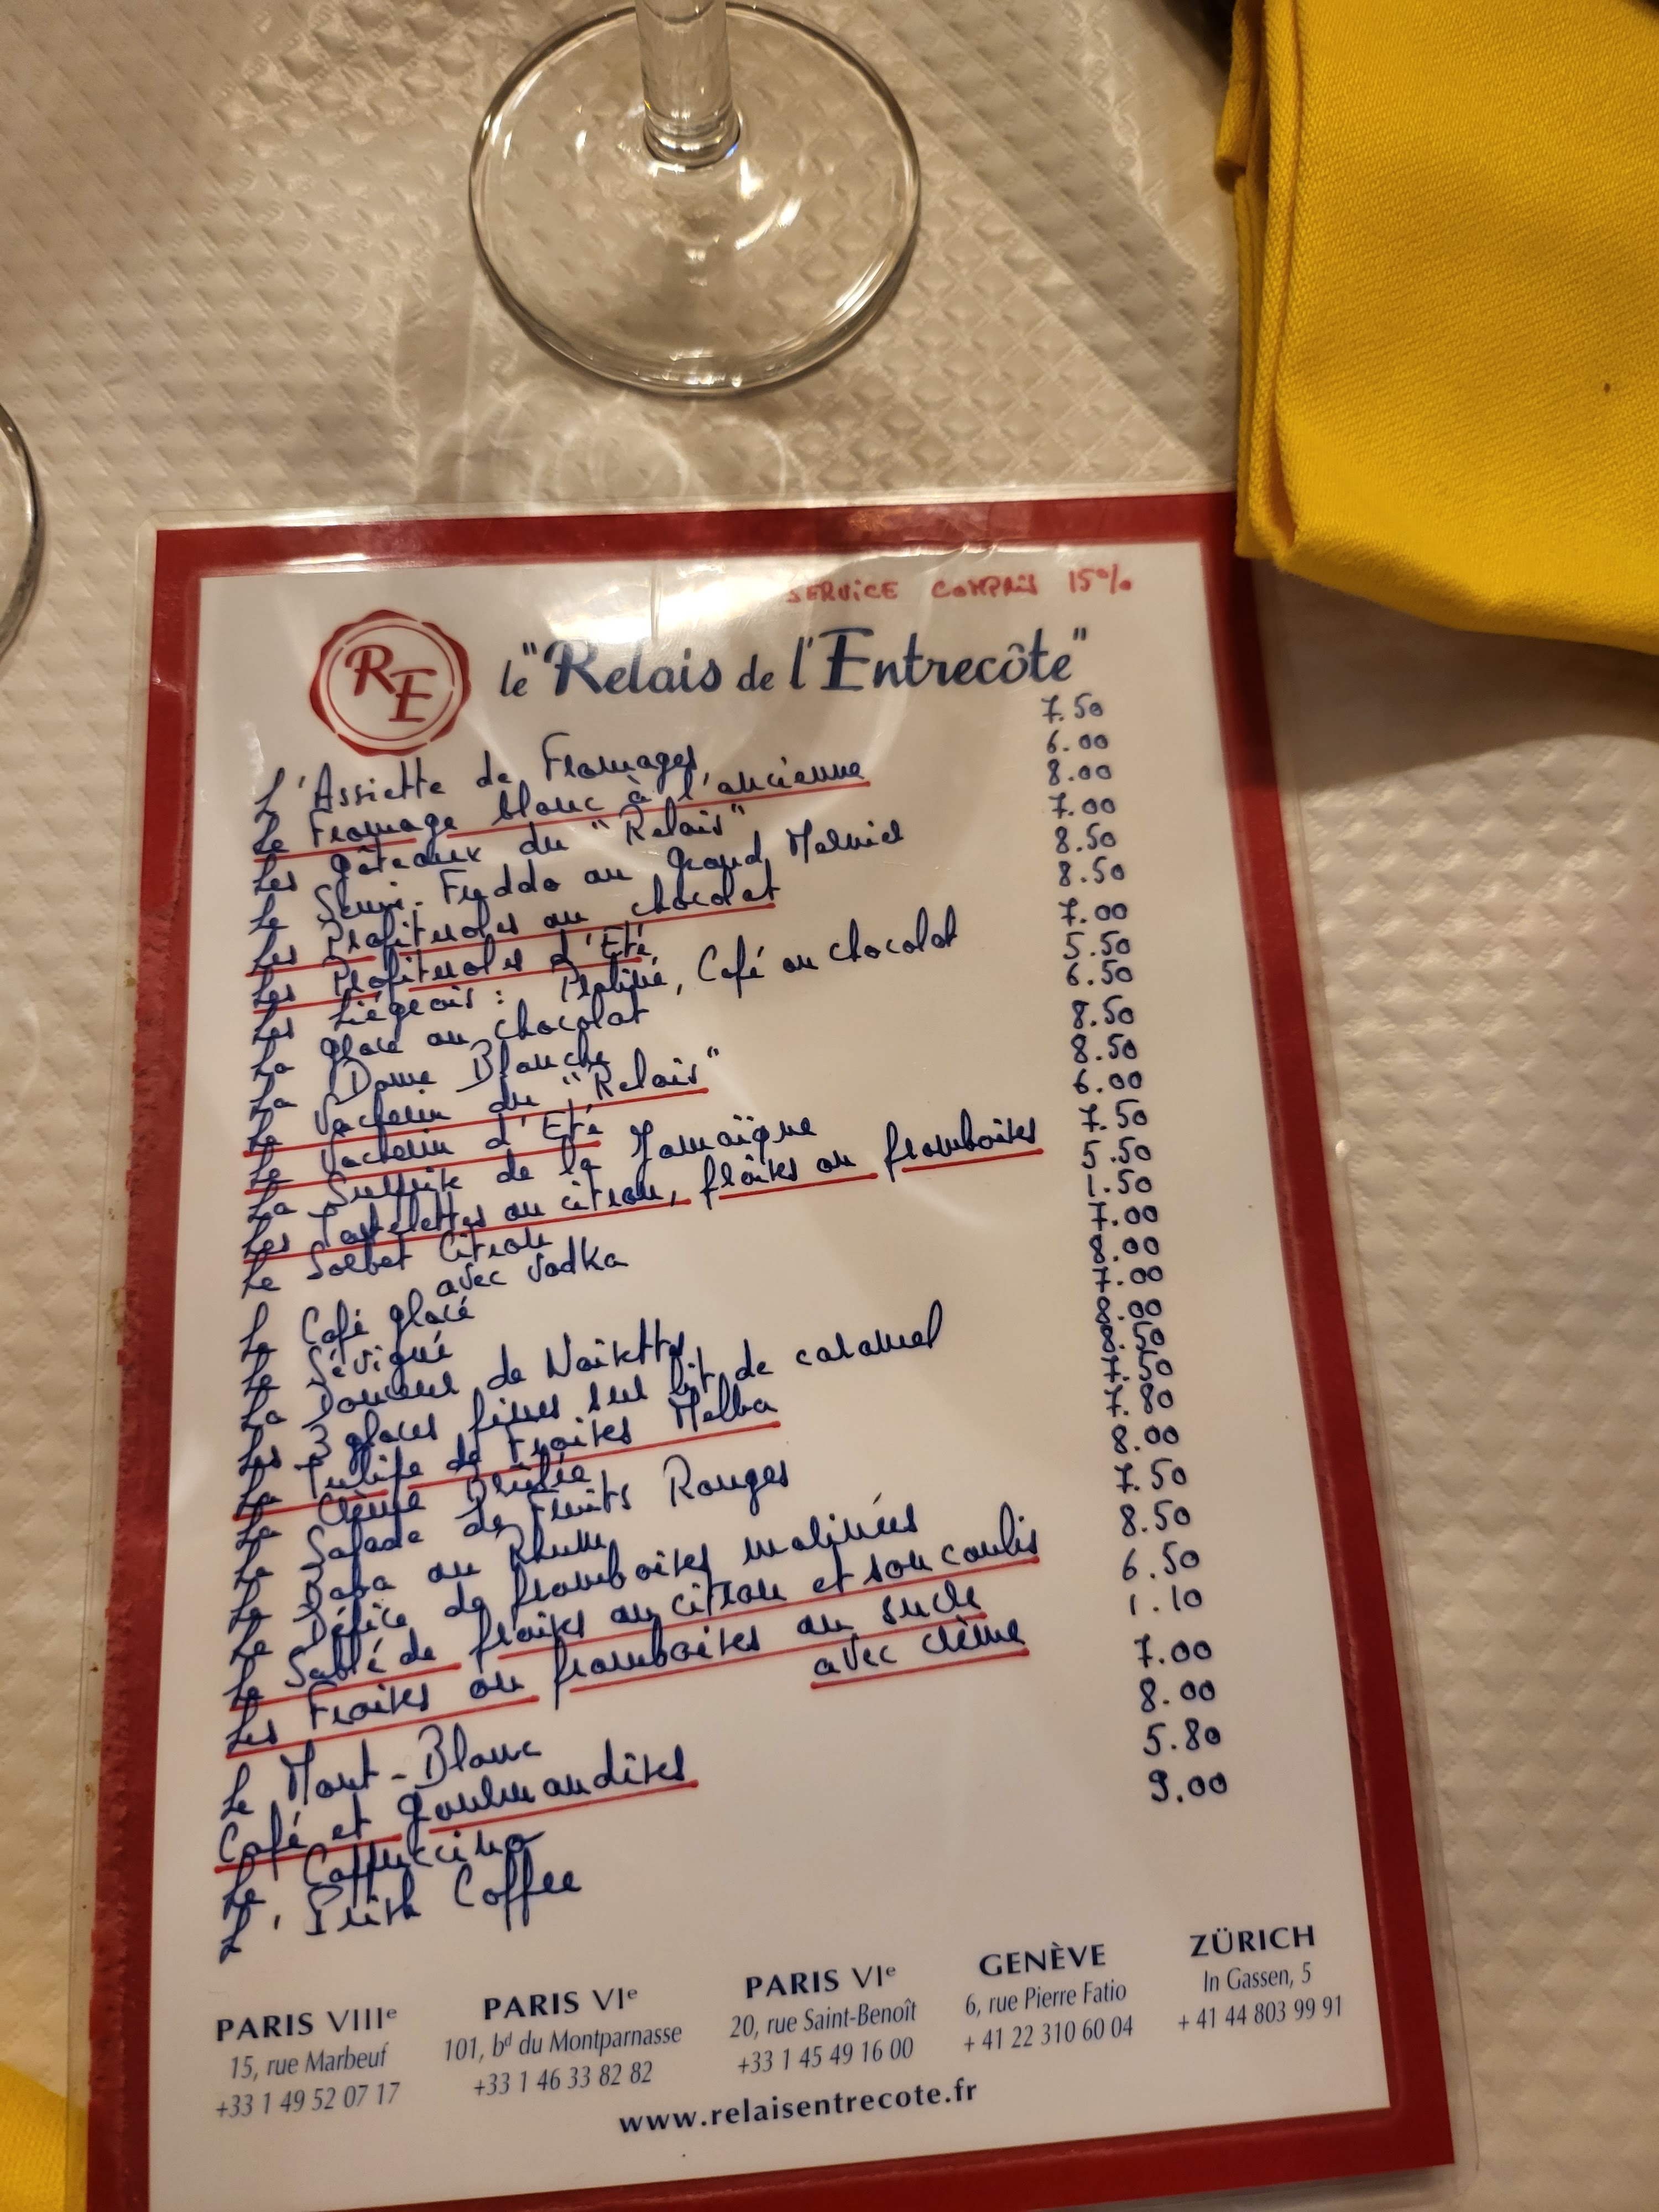 SERVICE COMPRIS 15%
RE
le "Relais de l'Entrecôte"
L'Assiette de Fromages 7.50
Le Fromage blanc à l'ancienne 6.00
Les Gâteaux du "Relais" 8.00
Le Semi-Freddo au Grand Marnier 7.00
Les Profiteroles au chocolat 8.50
Les Profiteroles d'Eté 8.50
Les Liégeois : Praliné, Café ou chocolat 7.00
La glace au chocolat 5.50
La Dame Blanche 6.50
Le Vacherin du "Relais" 8.50
Le Vacherin d'Eté 8.50
La Surprise de la Jamaïque 6.00
Les Tartelettes au citron, fraises ou framboises 7.50
Le Sorbet Citron 5.50
avec vodka 1.50
Le Café glacé 7.00
Le Sévigné 8.00
La Douceur de Noisettes 7.00
Les 3 glaces fines sur lit de caramel 8.00
La Tulipe de Fraises Melba 8.50
La Crème Brûlée 7.50
La Salade de Fruits Rouges 7.80
Le Baba au Rhum 8.00
Le Délice de framboises 7.50
Le Sablé de fraises au citron et son coulis 8.50
Les Fraises ou framboises au sucre 6.50
avec crème 1.10
Le Mont-Blanc 7.00
Café et gourmandises 8.00
Le Cappuccino 5.80
L'Irish Coffee 9.00
PARIS VIIIe
15, rue Marbeuf
+33 1 49 52 07 17
PARIS VIe
101, bd du Montparnasse
+33 1 46 33 82 82
PARIS VIe
20, rue Saint-Benoît
+33 1 45 49 16 00
GENÈVE
6, rue Pierre Fatio
+ 41 22 310 60 04
ZÜRICH
In Gassen, 5
+ 41 44 803 99 91
www.relaisentrecote.fr